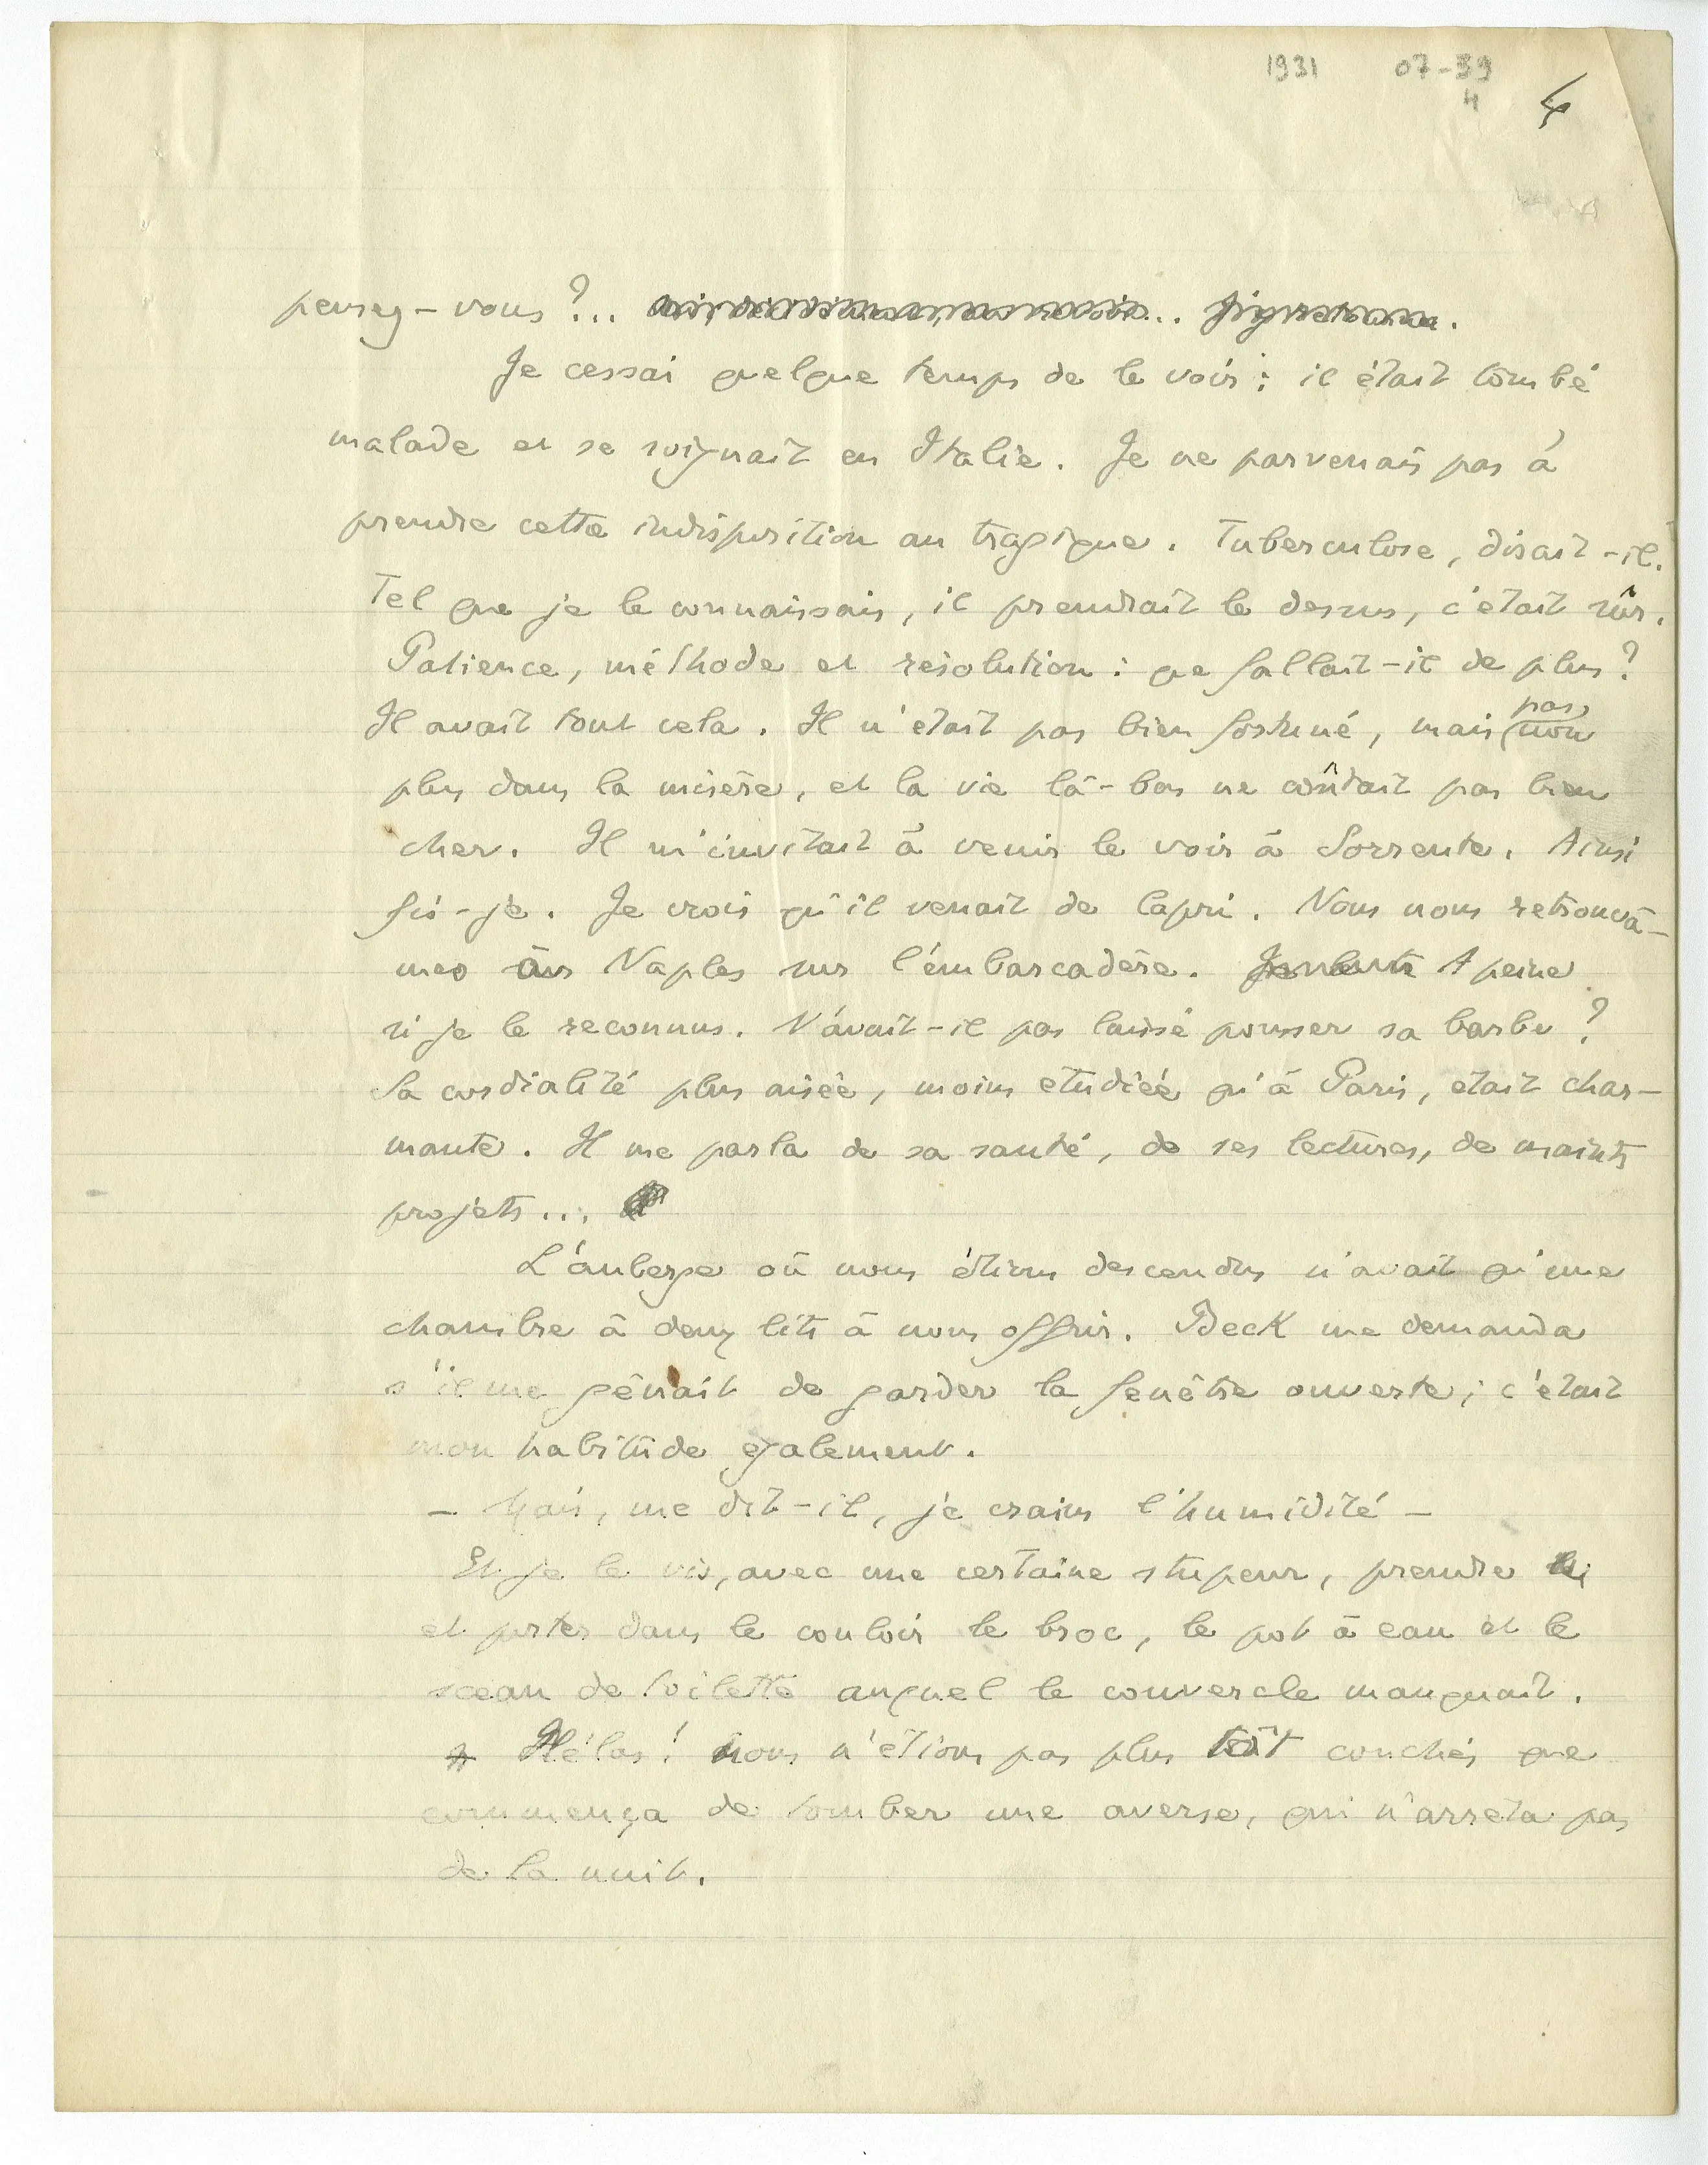 1931 07-39
4
4
pensez-vous ?...
Je cessai quelque temps de le voir ; il était tombé
malade et se soignait en Italie. Je ne parvenais pas à
prendre cette indisposition au tragique. Tuberculose, disait-il.
Tel que je le connaissais, il prendrait le dessus, c'était sûr.
Patience, méthode et résolution : que fallait-il de plus ?
Il avait tout cela. Il n'était pas bien fortuné, mais pas non
plus dans la misère, et la vie là-bas ne coûtait pas bien
cher. Il m'invitait à venir le voir à Sorrente. Ainsi
fis-je. Je crois qu'il venait de Capri. Nous nous retrouvâ-
mes à Naples sur l'embarcadère. A peine
si je le reconnus. N'avait-il pas laissé pousser sa barbe ?
Sa cordialité plus aisée, moins étudiée qu'à Paris, était char-
mante. Il me parla de sa santé, de ses lectures, de maints
projets...
L'auberge où nous étions descendus n'avait qu'une
chambre à deux lits à nous offrir. Beck me demanda
s'il me gênait de garder la fenêtre ouverte ; c'était
mon habitude également.
- Mais, me dit-il, je crains l'humidité -
Et je le vis, avec une certaine stupeur, prendre
et porter dans le couloir le broc, le pot à eau et le
sceau de toilette auquel le couvercle manquait.
Hélas ! nous n'étions pas plus tôt couchés que
commença de tomber une averse, qui n'arrêta pas
de la nuit.